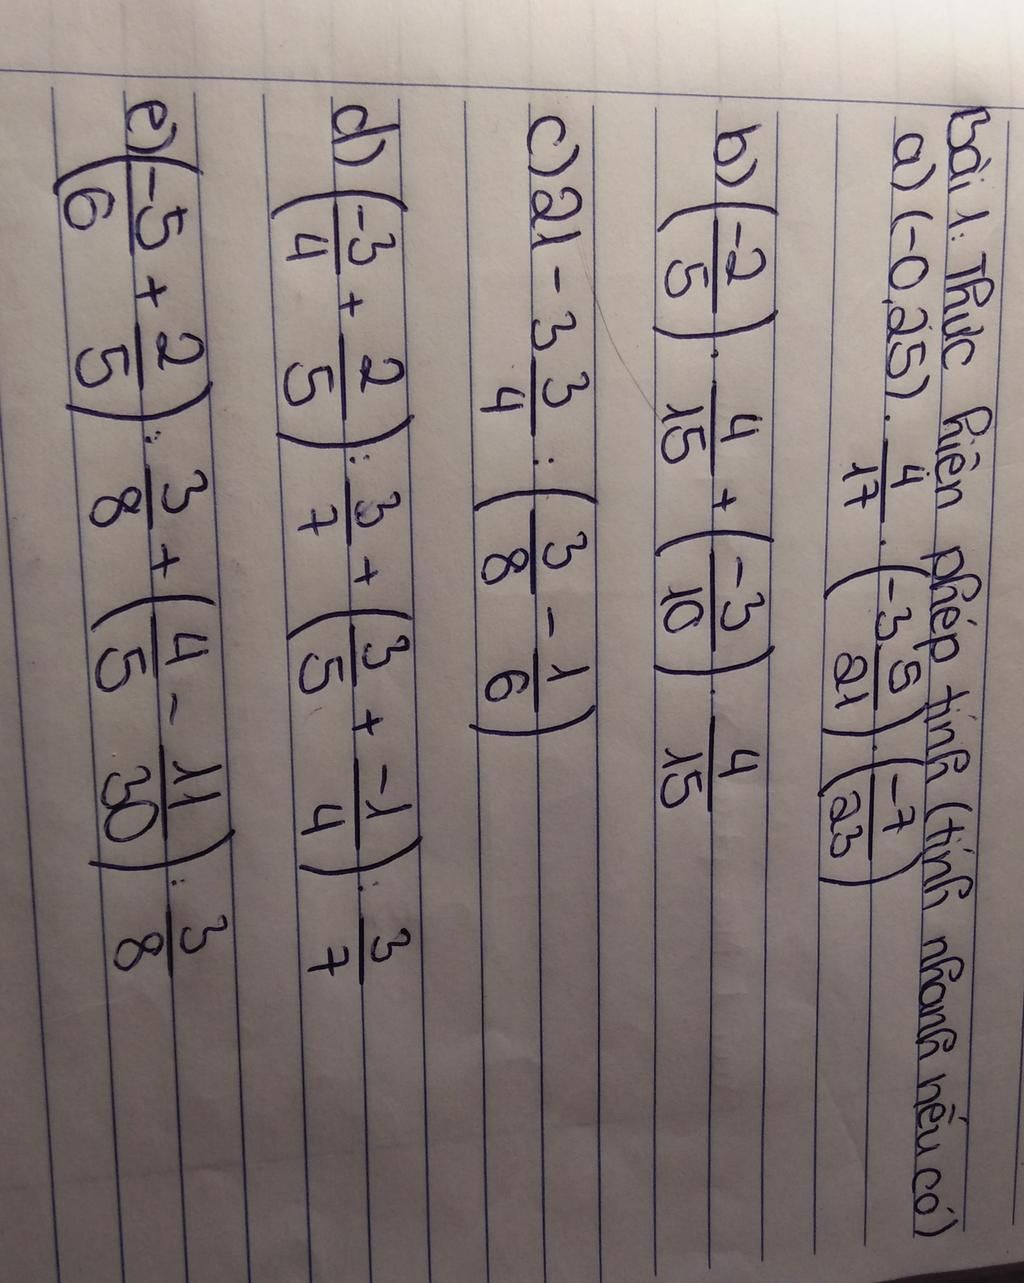 Bài 1: Thực hiện phép tính (tính nhanh nếu có)
a) (-0,25) . 4/17 . (-3,5/21) . (-7/23)
b) (-2/5) . 4/15 + (-3/10) . 4/15
c) 21 - 3 3/4 : (3/8 - 1/6)
d) (-3/4 + 2/5) : 3/7 + (3/5 + -1/4) : 3/7
e) (-5/6 + 2/5) : 3/8 + (4/5 - 11/30) : 3/8